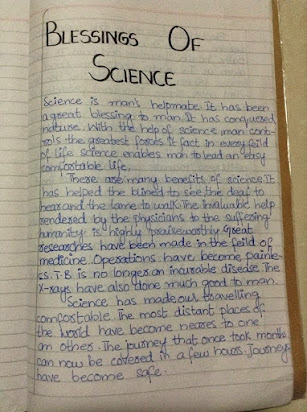 BLESSINGS OF
SCIENCE
Science is man's helpmate. It has been
a great blessing to man. It has conquered
nature. With the help of science man cont-
rols the greatest forces. It fact in every feild
of life science enables man to lead an easy
comfortable life.
There are many benefits of science. It
has helped the blined to see, the deaf to
hear and the lame to walk. The invaluable help
rendered by the physicians to the suffering
humanity is highly praiseworthy. Great
researches have been made in the feild of
medicine. Operations have become painle-
ss. T.B is no longer an incurable disease. The
X-rays have also done much good to man.
Science has made our travelling
comfortable. The most distant places of
the world have become neares to one
an other. The journey that once took months
can now be covered in a few hours. Journeys
have become safe.